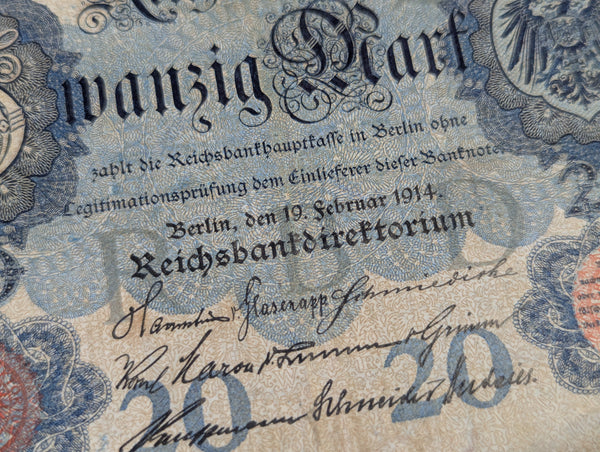 wanzig Mark
zahlt die Reichsbankhauptkasse in Berlin ohne
Legitimationsprüfung dem Einlieferer dieser Banknote
Berlin, den 19. Februar 1914.
Reichsbankdirektorium
R B D
v Glasenapp Schmiedicke
Korn Maron v Grimm
20 20
Kauffmann Schneider